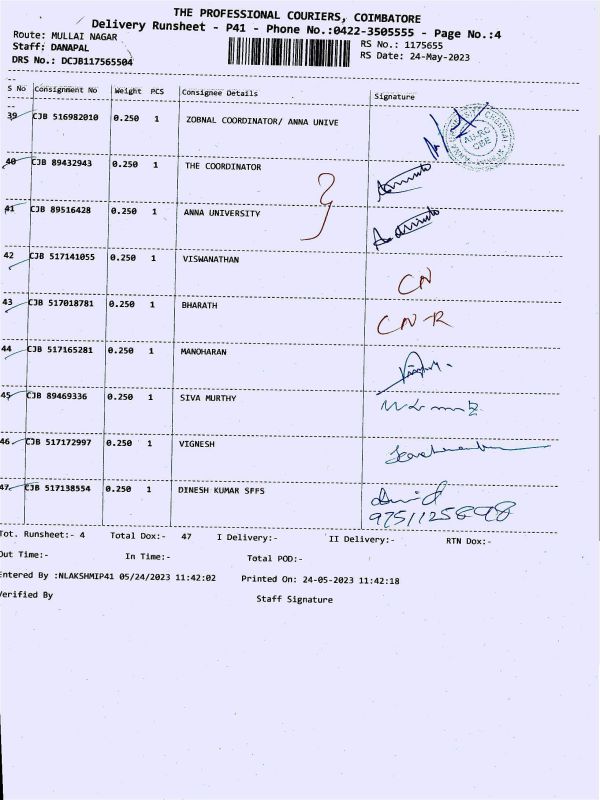 THE PROFESSIONAL COURIERS, COIMBATORE
Delivery Runsheet - P41 - Phone No.:0422-3505555 - Page No.:4
Route: MULLAI NAGAR RS No.: 1175655
Staff: DANAPAL RS Date: 24-May-2023
DRS No.: DCJB117565504
S No Consignment No Weight PCS Consignee Details Signature
39 CJB 516982010 0.250 1 ZOBNAL COORDINATOR/ ANNA UNIVE
40 CJB 89432943 0.250 1 THE COORDINATOR
41 CJB 89516428 0.250 1 ANNA UNIVERSITY
42 CJB 517141055 0.250 1 VISWANATHAN CN
43 CJB 517018781 0.250 1 BHARATH CN-R
44 CJB 517165281 0.250 1 MANOHARAN
45 CJB 89469336 0.250 1 SIVA MURTHY
46 CJB 517172997 0.250 1 VIGNESH
47 CJB 517138554 0.250 1 DINESH KUMAR SFFS
Tot. Runsheet:- 4 Total Dox:- 47 I Delivery:- II Delivery:- RTN Dox:-
Out Time:- In Time:- Total POD:-
Entered By :NLAKSHMIP41 05/24/2023 11:42:02 Printed On: 24-05-2023 11:42:18
Verified By Staff Signature